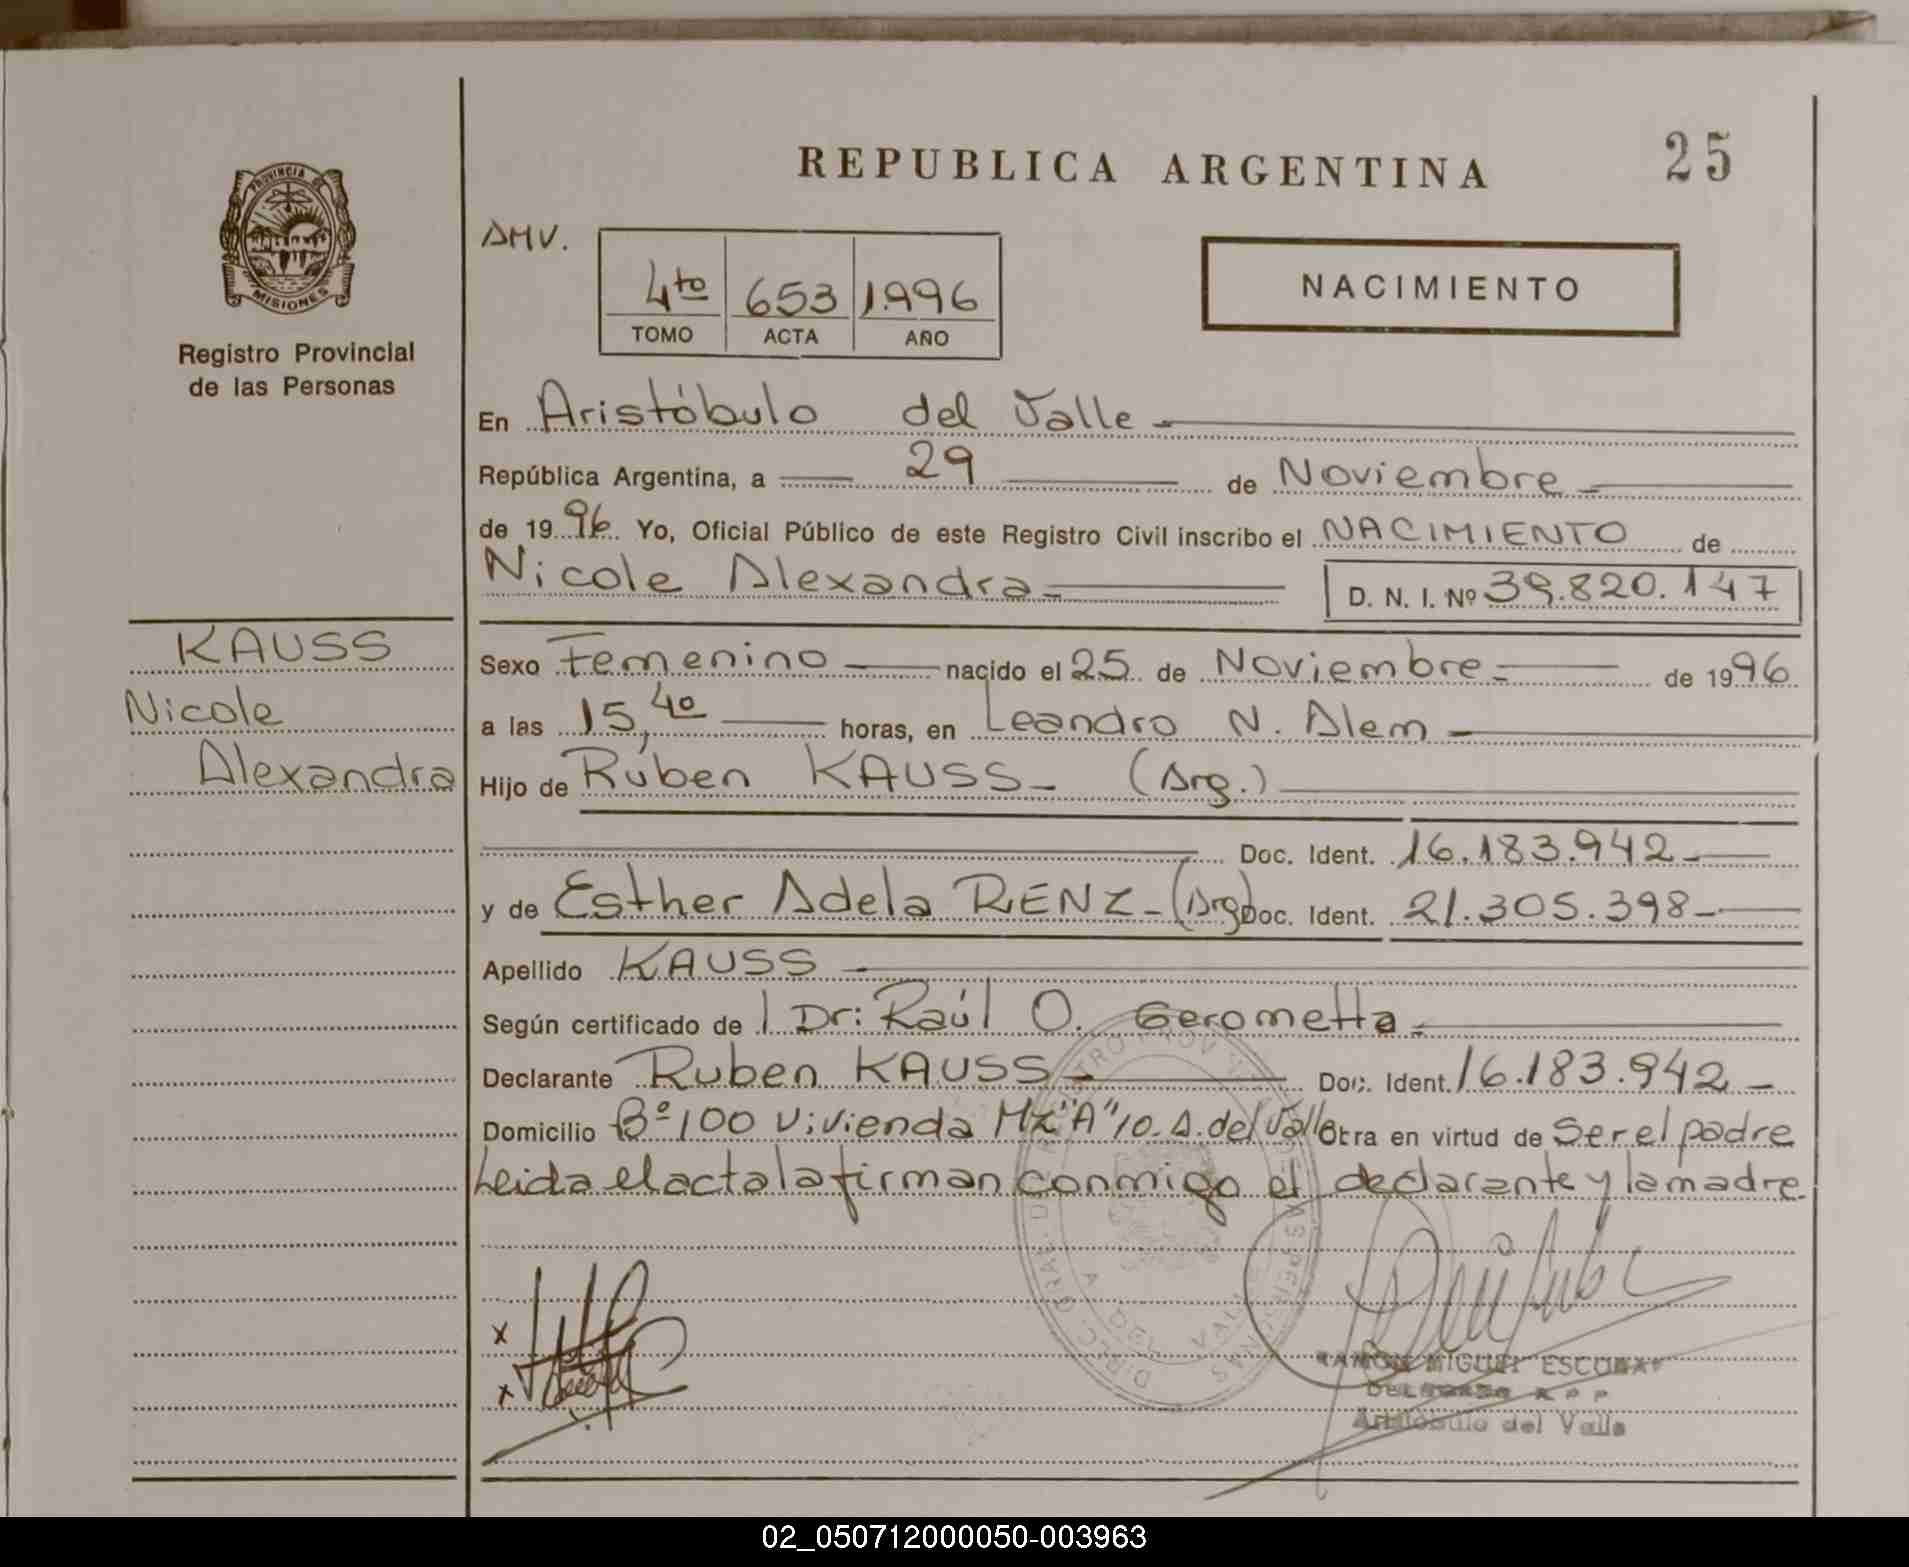 REPUBLICA ARGENTINA
25
PROVINCIA DE
MISIONES
Registro Provincial
de las Personas
AMV.
4to 653 1.996
TOMO ACTA AÑO
NACIMIENTO
En Aristóbulo del Valle
República Argentina, a 29 de Noviembre
de 1996. Yo, Oficial Público de este Registro Civil inscribo el NACIMIENTO de
Nicole Alexandra D. N. I. Nº 39.820.147
KAUSS
Nicole
Alexandra
Sexo Femenino nacido el 25 de Noviembre de 1996
a las 15,40 horas, en Leandro N. Alem
Hijo de Rúben KAUSS (Arg.)
Doc. Ident. 16.183.942
y de Esther Adela RENZ (Arg) Doc. Ident. 21.305.398
Apellido KAUSS
Según certificado de Dr: Raúl O. Gerometta
Declarante Ruben KAUSS Doc. Ident. 16.183.942
Domicilio Bº 100 Vivienda MZ"A" 10. A. del Valle Otra en virtud de Ser el padre
Leida el acta la firman conmigo el declarante y la madre.
x
x
RAMON MIGUEL ESCOBAR
DELEGADO
Aristóbulo del Valle
02_050712000050-003963